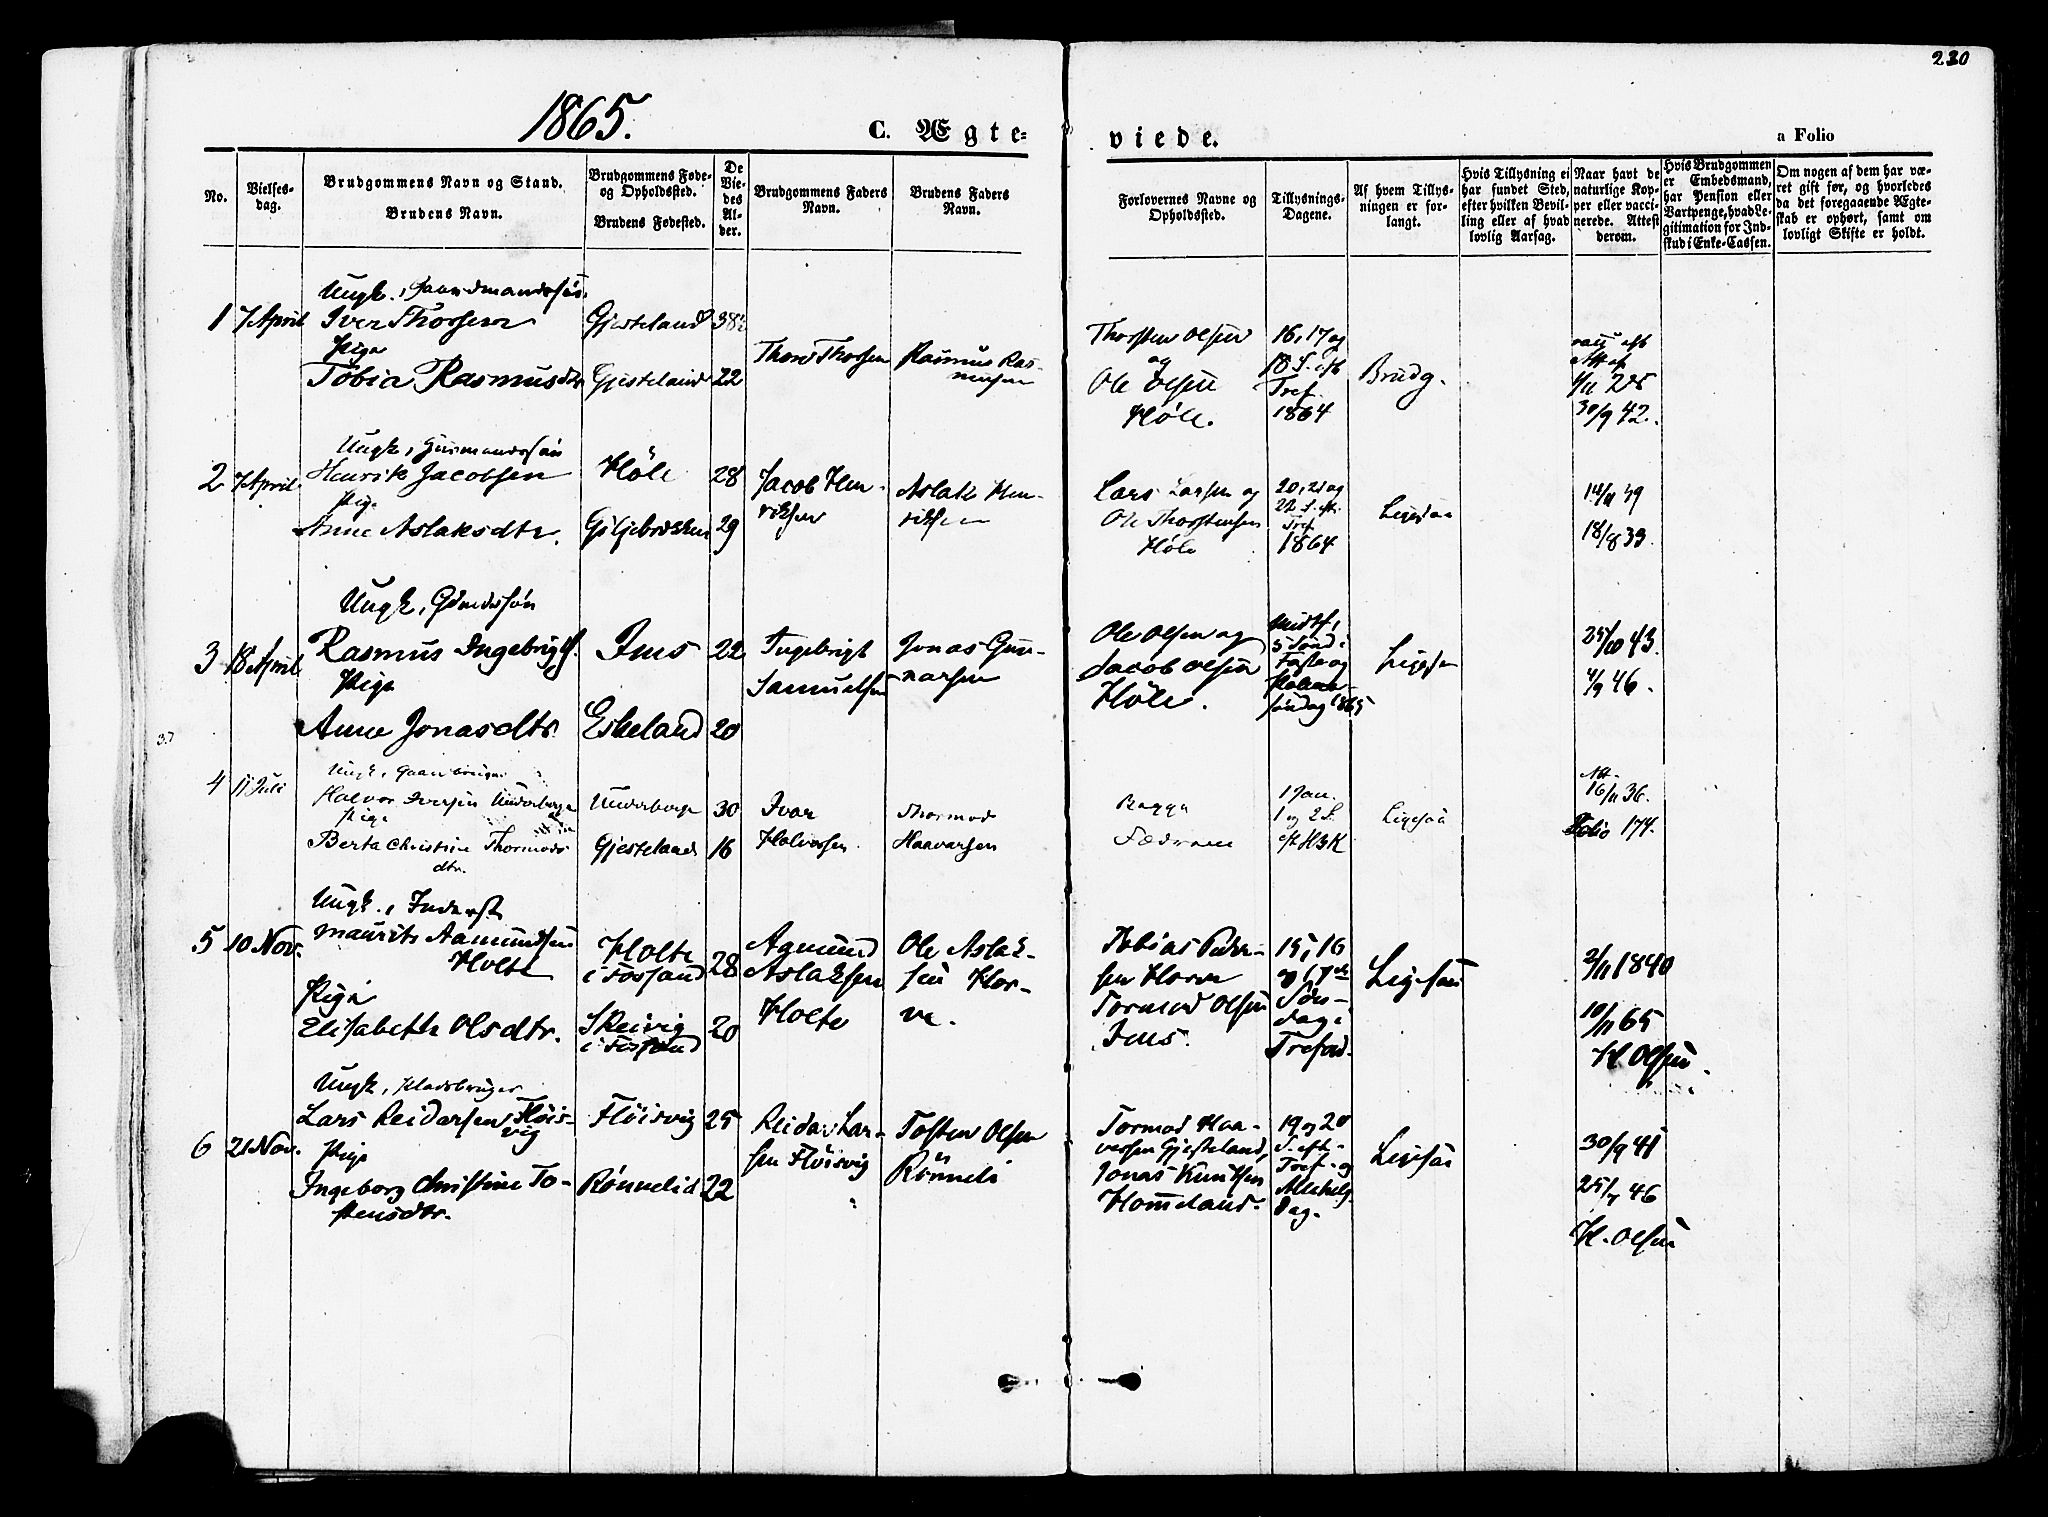 220
1865.
C. Ægte-
viede.
a Folio
No.
Vielses-
dag.
Brudgommens Navn og Stand.
Brudens Navn.
Brudgommens Føde-
og Opholdssted.
Brudens Fødested.
De
Vie-
des
Al-
der.
Brudgommens Faders
Navn.
Brudens Faders
Navn.
Forlovernes Navne og
Opholdssted.
Tillysnings-
Dagene.
Af hvem Tillys-
ningen er for-
langt.
Hvis Tillysning ei
har fundet Sted,
efter hvilken Bevil-
ling eller af hvad
lovlig Aarsag.
Naar havt de
naturlige Kop-
per eller vacci-
nerede. Attest
derom.
Hvis Brudgommen
er Embedsmand,
har Pension eller
Vartpenge, hvad Le-
gitimation for Ind-
skud i Enke-Cassen.
Om nogen af dem har væ-
ret gift før, og hvorledes
da det foregaaende Ægte-
skab er ophørt, samt om
lovligt Skifte er holdt.
1
7 April
Ungk., Gaardmandssøn
Iver Thorsen
Pige
Tobia Rasmusdtr
Gjesteland
Gjesteland
38
22
Thore Thorsen
Rasmus Ras-
musen
Thorsten Olsen
og
Ole Olsen
Høle.
16, 17 og
18 S. eft
Tref.
1864
Brudg.
1/11 25
30/9 42.
2
7 April.
Ungk,
Henrik Jacobsen
Pige
Anne Aslaksdtr.
Høle
Giljebrekken
28
29
Jacob Hen-
riksen
Aslak Hen-
riksen
Lars Larsen og
Ole Thorstensen
Høle
20, 21 og
22 S. eft.
Tref
1864
Ligesaa
14/11 39
18/8 39.
3
18 April
Ungk,
Rasmus Ingebrigts.
Pige
Anne Jonasdtr.
Ims
Eskeland
22
20
Ingebrigt
Samuelsen
Jonas Gun-
narsen
Ole Olsen og
Jacob Olsen
Høle.
Midtf,
5 Sønd i
Faste og
Palme-
søndag 1865
Ligesaa
25/10 43.
4/9 46.
37
4
11 Juli
Ungk, Gaardbruger
Halvor Iversen Underberge
Pige
Berta Christine Thormods
dtr.
Underberge
Gjesteland
30
16
Ivar
Halvorsen
Thormod
Haavarsen
Begge
Fædrene
1 Jan.
1 og 2 S.
eft H3K
Ligesaa
Att.
16/11 36.
Folio 174.
5
10 Nov.
Ungk., Inderst
Maurits Aamundsen
Holte
Pige
Elisabeth Olsdtr.
Holte
i Fossand
Skeivig
i Fossand
28
20
Agmund
Aslaksen
Holte
Ole Aslak-
sen Hor-
ve.
Tobias Peder-
sen Horve
Tormod Olsen
Ims.
15, 16
og 17de
Søn-
dag i
Trefold.
Ligesaa
2/11 1840
10/11 65
H. Olsen
6
21 Nov.
Ungk, Pladsbruger
Lars Reidarsen Fløis-
vig
Pige
Ingeborg Christine To-
stensdtr.
Fløisvig
Rønnelid
25
22
Reidar Lar-
sen Fløisvig
Tosten Olsen
Rönneli
Tormod Haa-
versen Gjesteland,
Jonas Knutsen
Hommeland.
19 og 20
S. eft.
Tref. og
Allehelg
Dag.
Ligesaa
30/9 41
25/7 46
H. Olsen